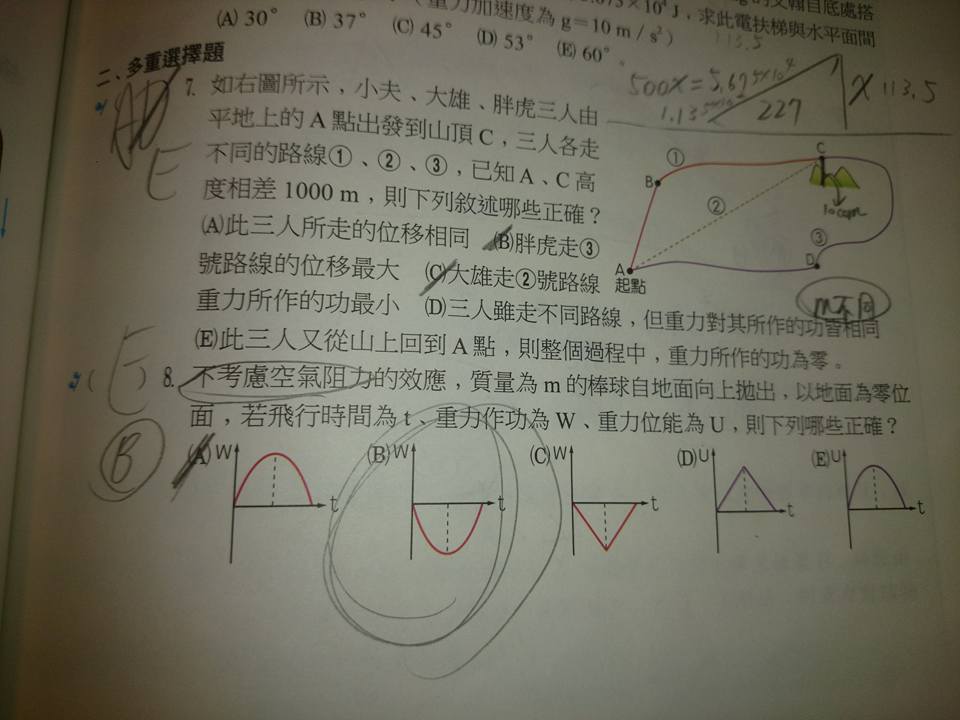 重力加速度為 g=10 m / s²)
J,求此電扶梯與水平面間
(A) 30° (B) 37° (C) 45° (D) 53° (E) 60°。
113.5
二、多重選擇題
500x=5.675×10⁴
227
x 113.5
AD
E
7. 如右圖所示,小夫、大雄、胖虎三人由
平地上的 A 點出發到山頂 C,三人各走
不同的路線①、②、③,已知 A、C 高
度相差 1000 m,則下列敘述哪些正確?
(A)此三人所走的位移相同 (B)胖虎走③
號路線的位移最大 (C)大雄走②號路線
重力所作的功最小 (D)三人雖走不同路線,但重力對其所作的功皆相同
(E)此三人又從山上回到 A 點,則整個過程中,重力所作的功為零。
① C
B
②
1000m
③
A D
起點
m不同
E
( ) 8. 不考慮空氣阻力的效應,質量為 m 的棒球自地面向上拋出,以地面為零位
面,若飛行時間為 t、重力作功為 W、重力位能為 U,則下列哪些正確?
B
(A) W t (B) W t (C) W t (D) U t (E) U t